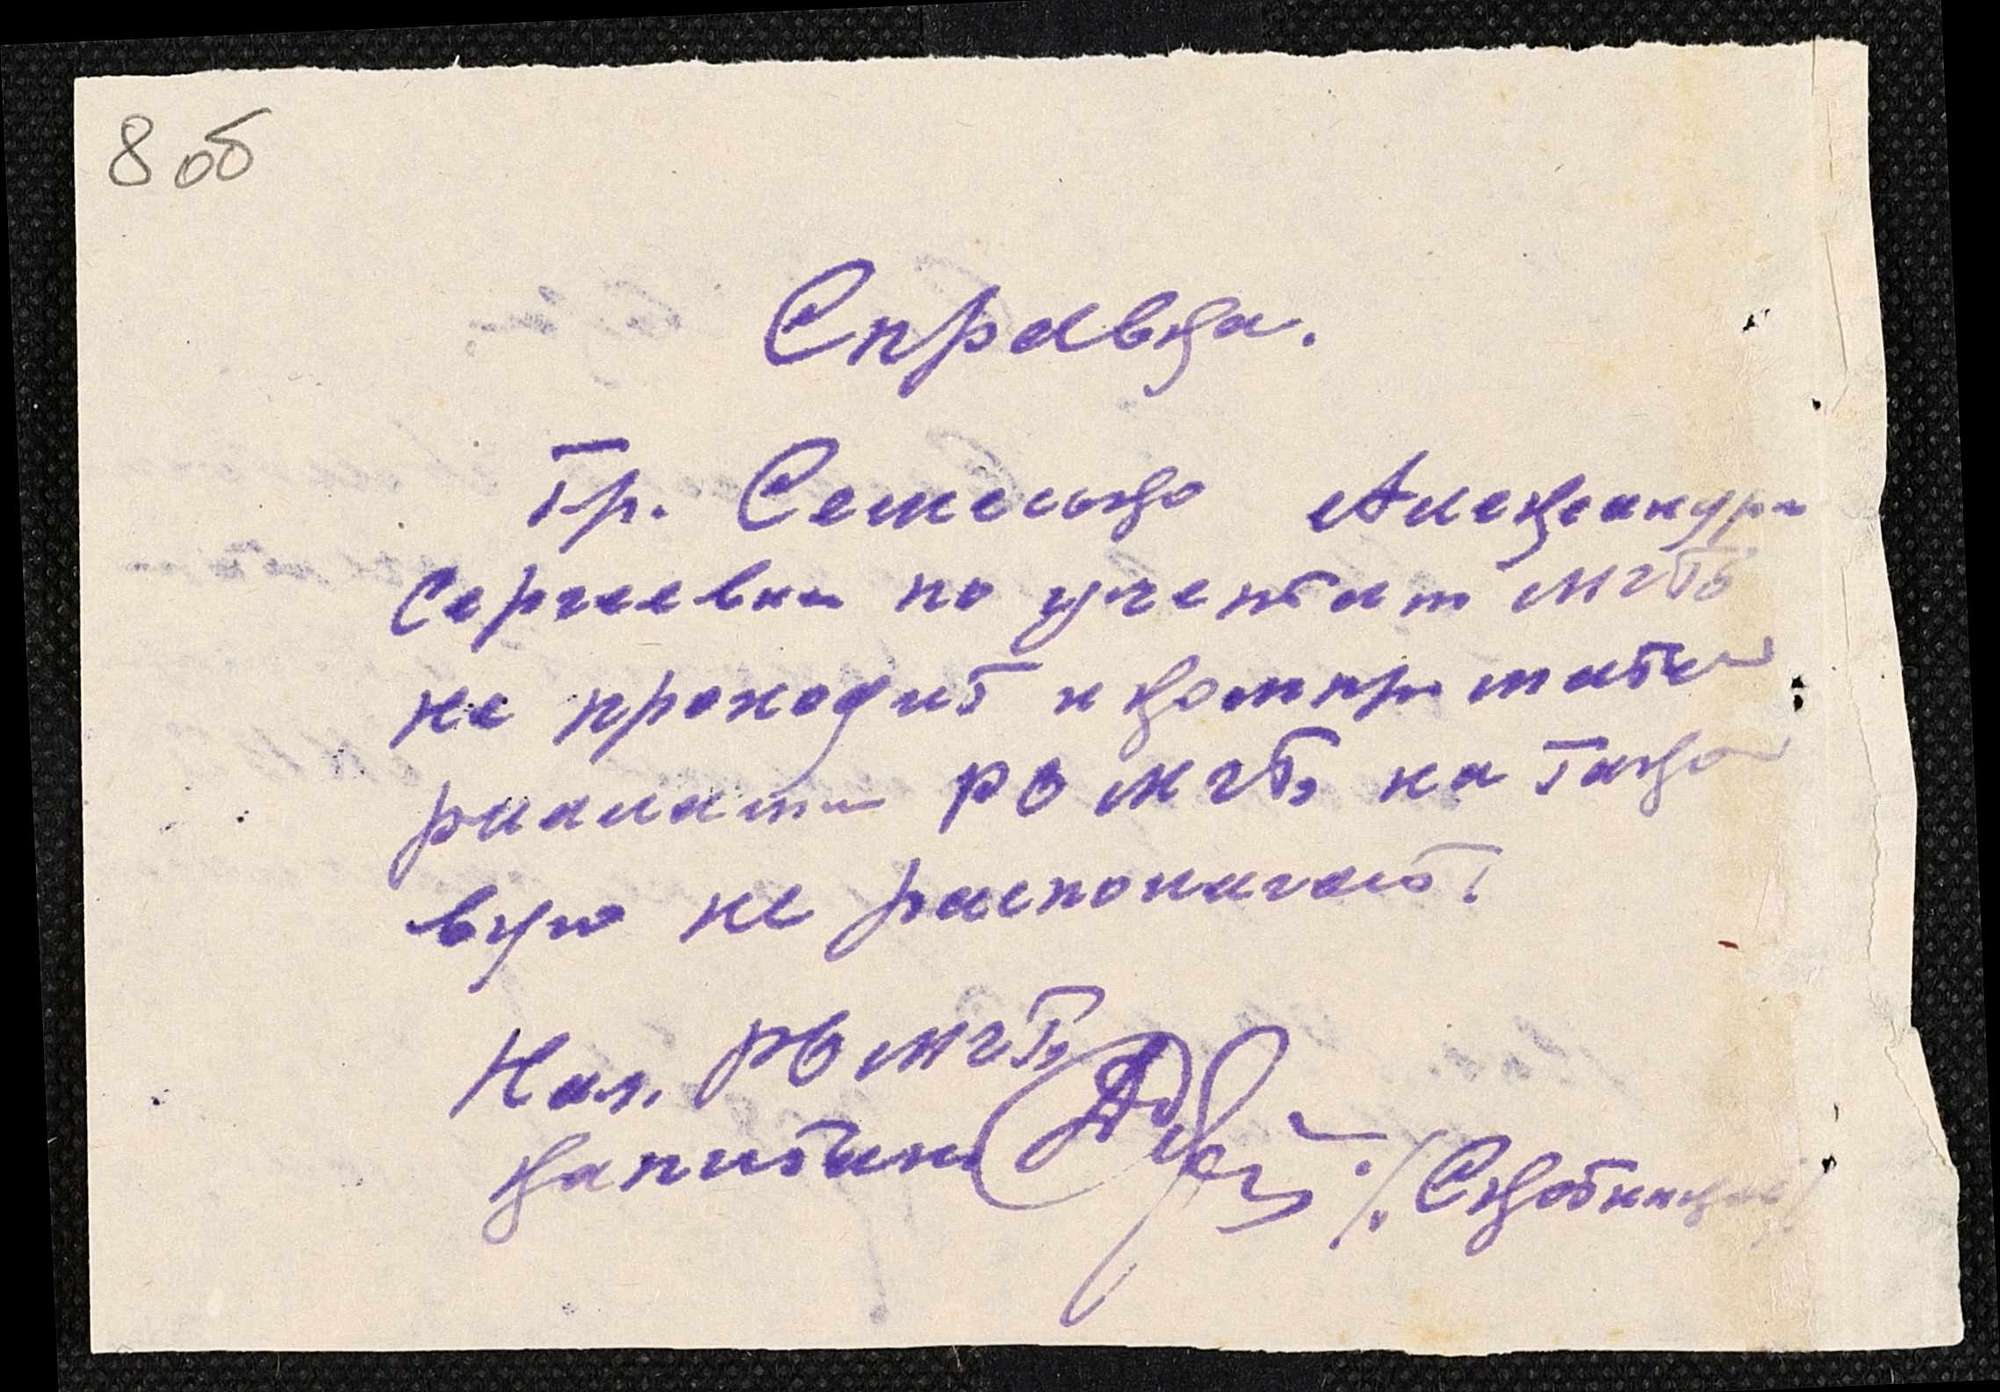 8 об
Справка.
Гр. Семенько Александра
Сергеевна по учетам МГБ
не проходит и компр. мате
риалами РО МГБ на тако
вую не располагает.
Нач. РО МГБ
капитан